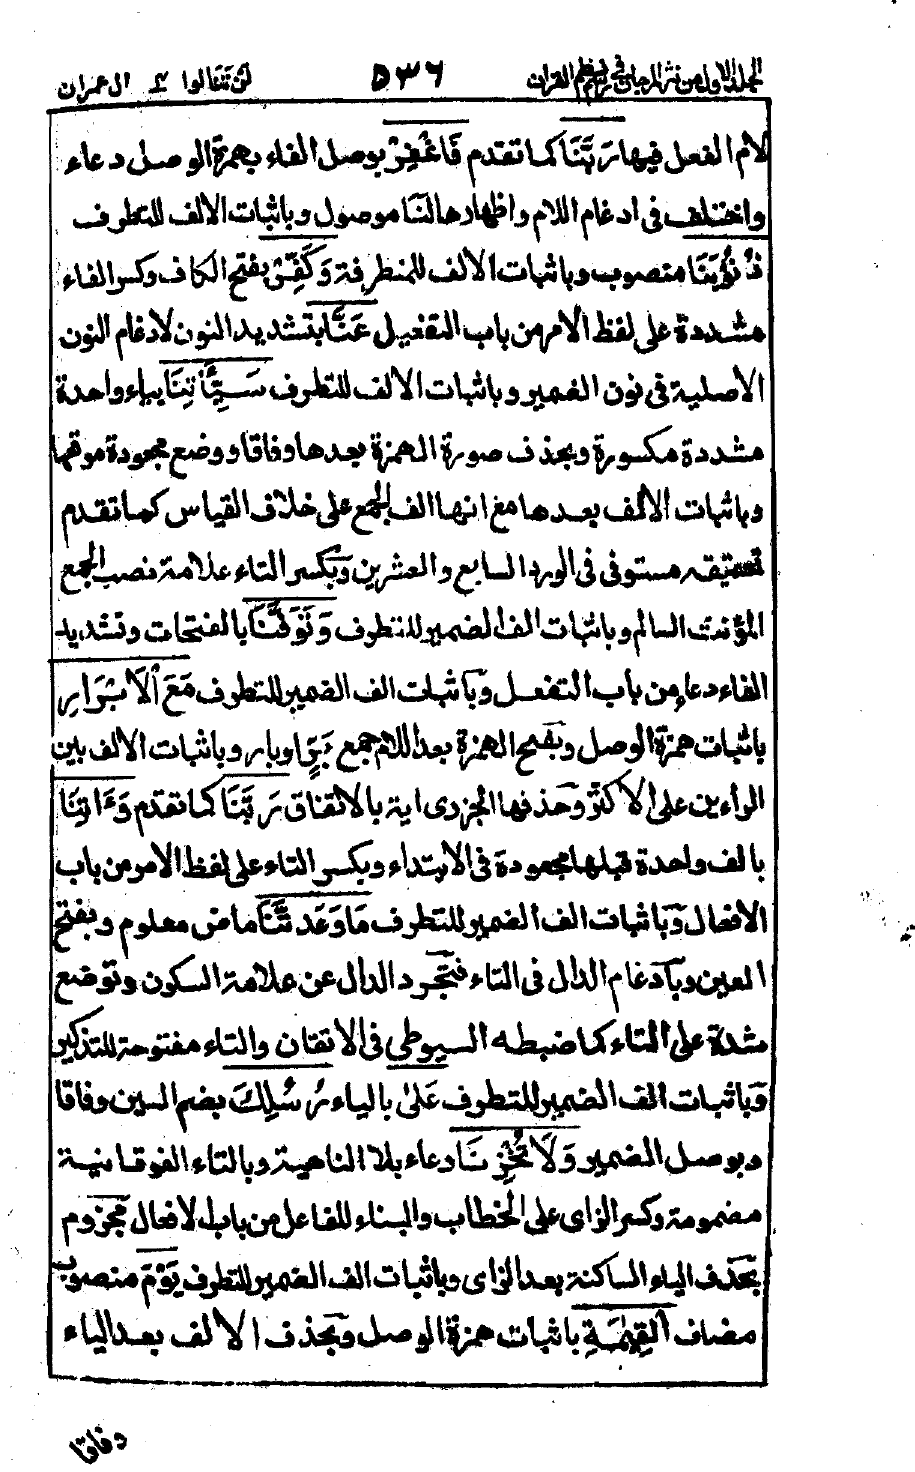 الجلد الاول من نثر المرجان في رسم نظم القران ٥٣٦ لن تنالوا ٤ ال عمران
لام الفعل فيها رَبَّنَا كما تقدم فَاغْفِرْ بوصل الفاء بهمزة الوصل دعاء
واختلف فى ادغام اللام واظهارها لَنَا موصول وباثبات الالف للتطرف
ذُنُوْبَنَا منصوب وباثبات الالف للمتطرفة وَكَفِّرْ بفتح الكاف وكسر الفاء
مشددة على لفظ الامر من باب التفعيل عَنَّا بتشديد النون لادغام النون
الاصلية فى نون الضمير وباثبات الالف للتطرف سَيِّـَٔاتِنَا بياء واحدة
مشددة مكسورة وبحذف صورة الهمزة بعدها وفاقا ووضع مجعودة موقعها
وباثبات الالف بعدها مع انها الف الجمع على خلاف القياس كما تقدم
تحقيقه مستوفى فى الورد السابع والعشرين وبكسر التاء علامة نصب الجمع
المؤنث السالم وباثبات الف الضمير للتطرف وَتَوَفَّنَا بالفتحات وتشديد
الفاء دعاء من باب التفعل وباثبات الف الضمير للتطرف مَعَ الْاَبْرَارِ
باثبات همزة الوصل وبفتح الهمزة بعد اللام جمع بَرٍّ او بار وباثبات الالف بين
الراءين على الاكثر وحذفها الجزرى اية بالاتفاق رَبَّنَا كما تقدم وَءَاتِنَا
بالف واحدة قبلها مجعودة فى الابتداء وبكسر التاء على لفظ الامر من باب
الافعال وباثبات الف الضمير للتطرف مَا وَعَدْتَّنَا ماض معلوم وبفتح
العين وبادغام الدال فى التاء فتجرد الدال عن علامة السكون وتوضع
شدة على التاء كما ضبطه السيوطى فى الاتقان والتاء مفتوحة للتذكير
وباثبات الف الضمير للتطرف عَلٰى بالياء رُسُلِكَ بضم السين وفاقا
وبوصل الضمير وَلَا تُخْزِنَا دعاء بلا الناهية وبالتاء الفوقانية
مضمومة وكسر الزاى على الخطاب والبناء للفاعل من باب الافعال مجزوم
بحذف الياء الساكنة بعد الزاى وباثبات الف الضمير للتطرف يَوْمَ منصوب
مضاف الْقِيٰمَةِ باثبات همزة الوصل وبحذف الالف بعد الياء
وفاقا